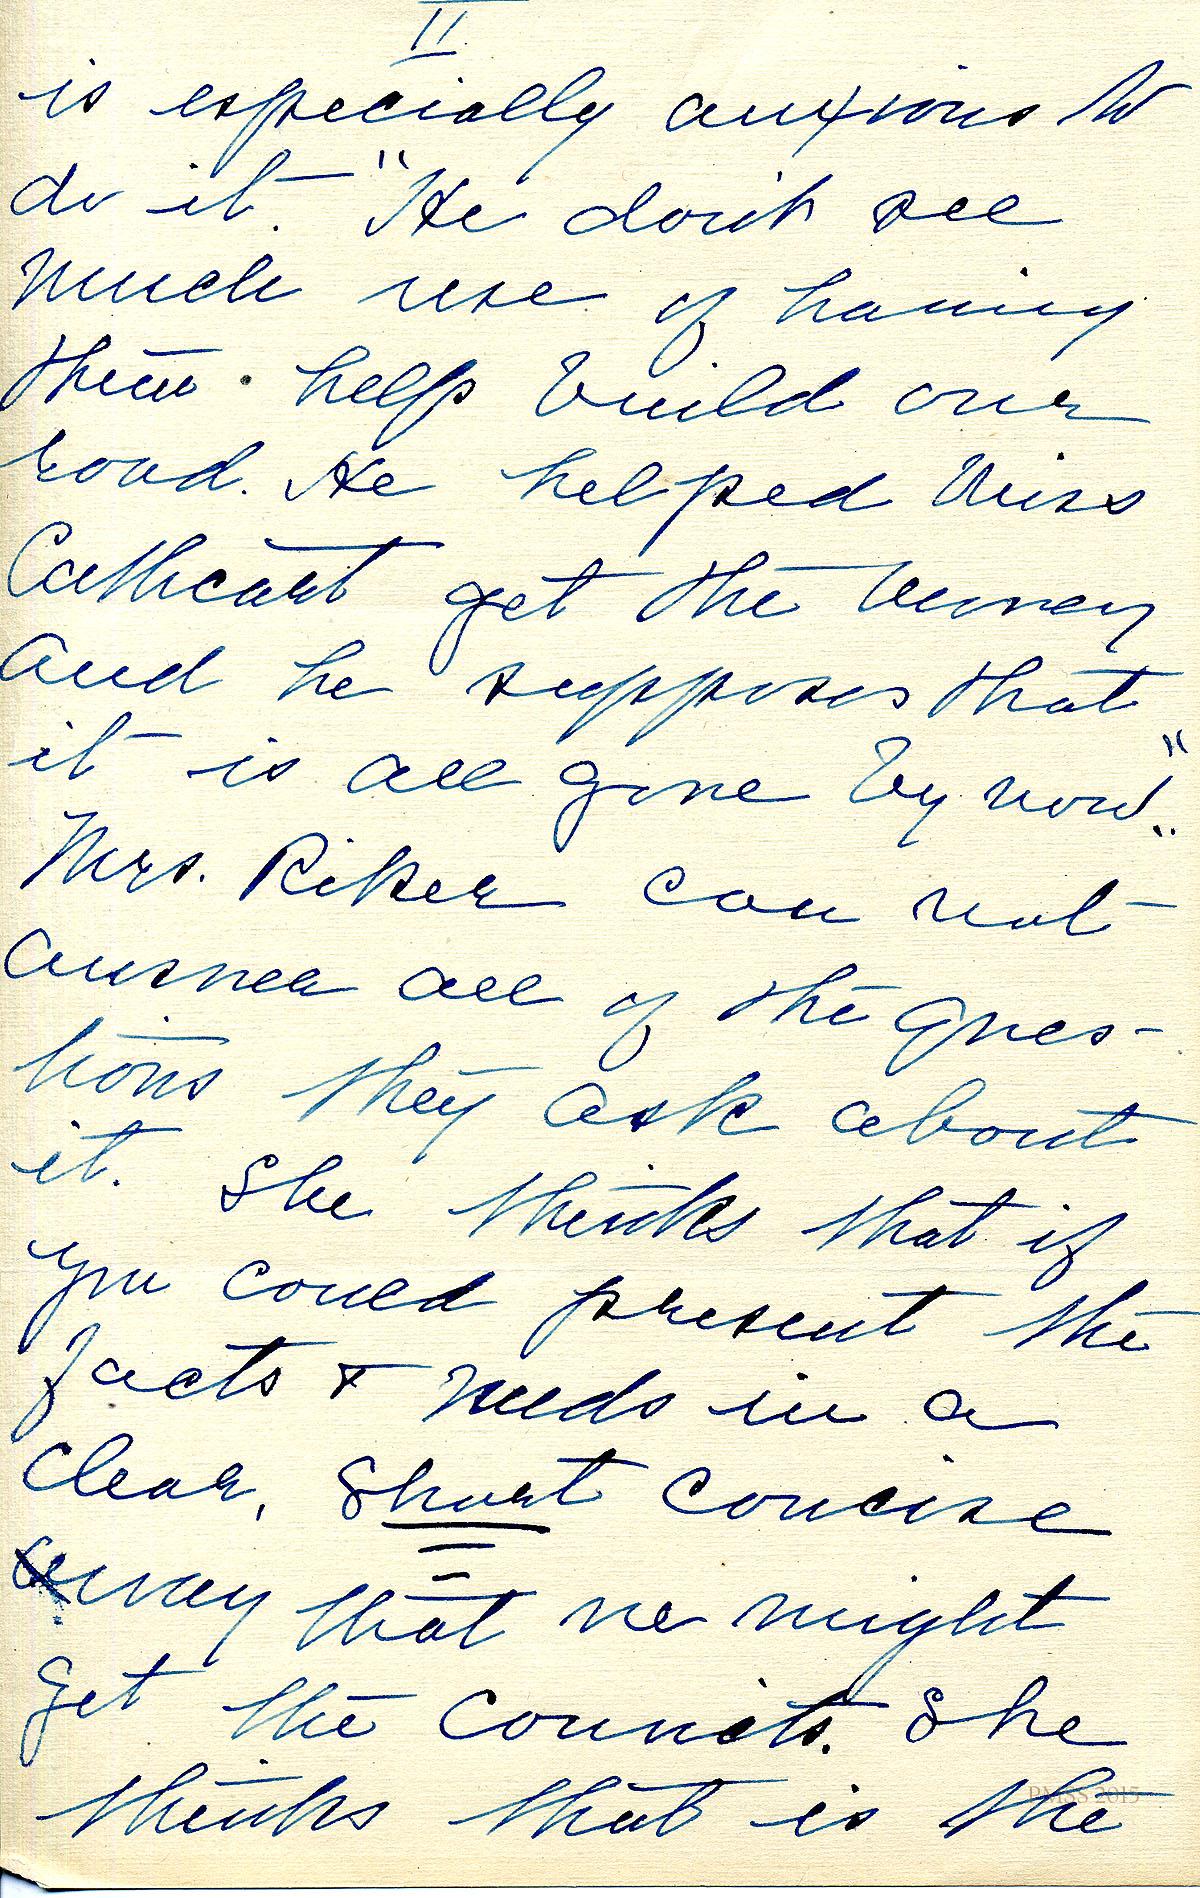 II
is especially anxious to
do it. "He don't see
much use of having
them help build our
road. He helped Miss
Cathcart get the money
and he supposes that
it is all gone by now."
Mrs. Riker can not
answer all of the ques-
tions they ask about
it. She thinks that if
you could present the
facts & needs in a
clear, short concise
way that we might
get the Councils. She
thinks that is the
PMSS 2015